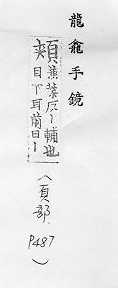 龍龕手鏡
頰
葉反丨輔也
目下耳前曰丨
(頁部
P487)